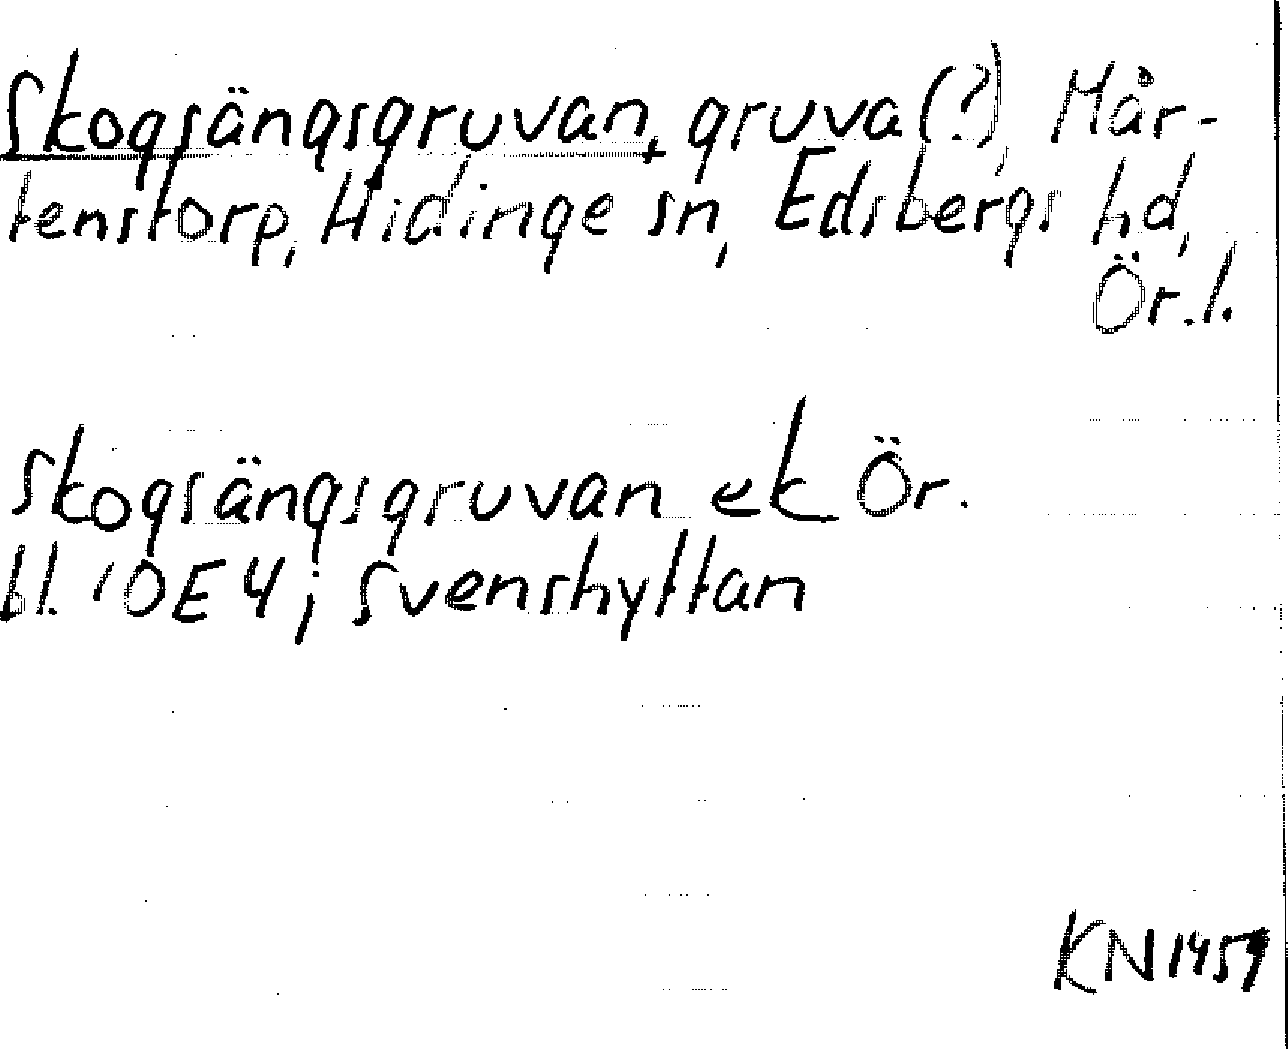 Skogsängsgruvan, gruva (?), Mår-
tenstorp, Hidinge sn, Edsbergs hd,
Ör. l.
Skogsängsgruvan ek Ör.
bl. 10E4; Svenshyttan
KN 1959